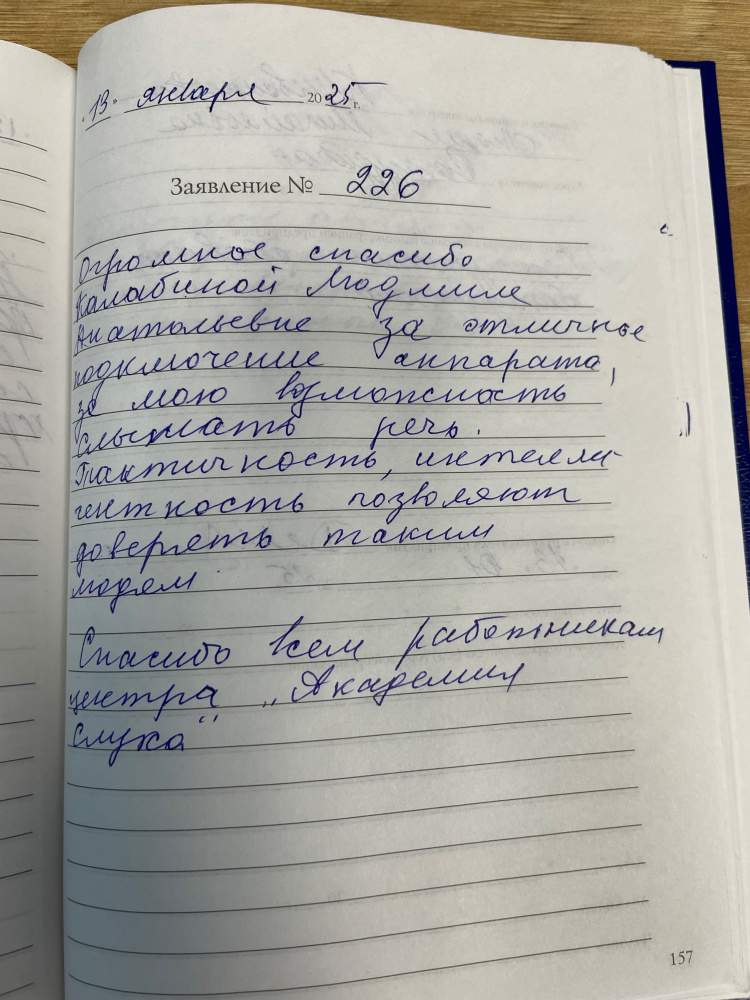 "13" января 2025 г.
Заявление № 226
Огромное спасибо
Калабиной Людмиле
Анатольевне за отличное
подключение аппарата,
за мою возможность
слышать речь.
Практичность, интелли-
гентность позволяют
доверять таким
людям.
Спасибо всем работникам
центра „Академия
слуха"
157